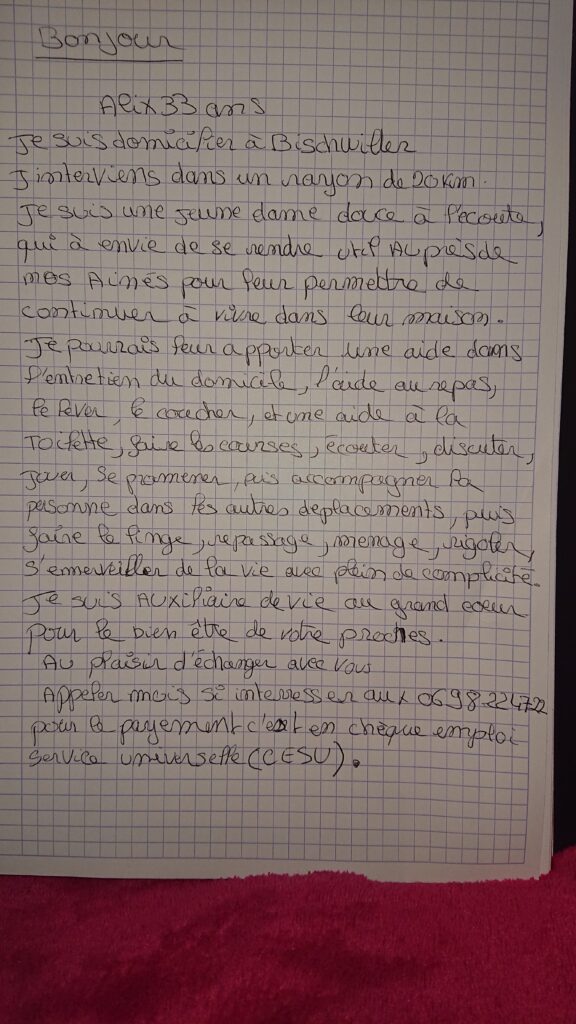 Bonjour
Alix 33 ans
Je suis domicifier à Bischwiller
J interviens dans un rayon de 20 km.
Je suis une jeune dame douce à l'écoute,
qui à envie de se rendre util AU près de
mes Ainés pour leur permettre de
continuer à vivre dans leur maison.
Je pourrais leur apporter une aide dans
l'entretien du domicile, l'aide au repas,
le lever, le coucher, et une aide à la
Toilette, faire les courses, écouter, discuter,
Jouer, se promener, puis accompagner la
personne dans les autres deplacements, puis
faire le linge, repassage, menage, rigoler,
s'enmerveiller de la vie avec plein de complicité.
Je suis AUxiliaire de vie au grand coeur
pour le bien être de votre proches.
AU plaisir d'échanger avec vous
Appeler mois si interresser aux 06.98.22.47.22
pour le payement c'est en chèque emploi
service universelle (CESU).